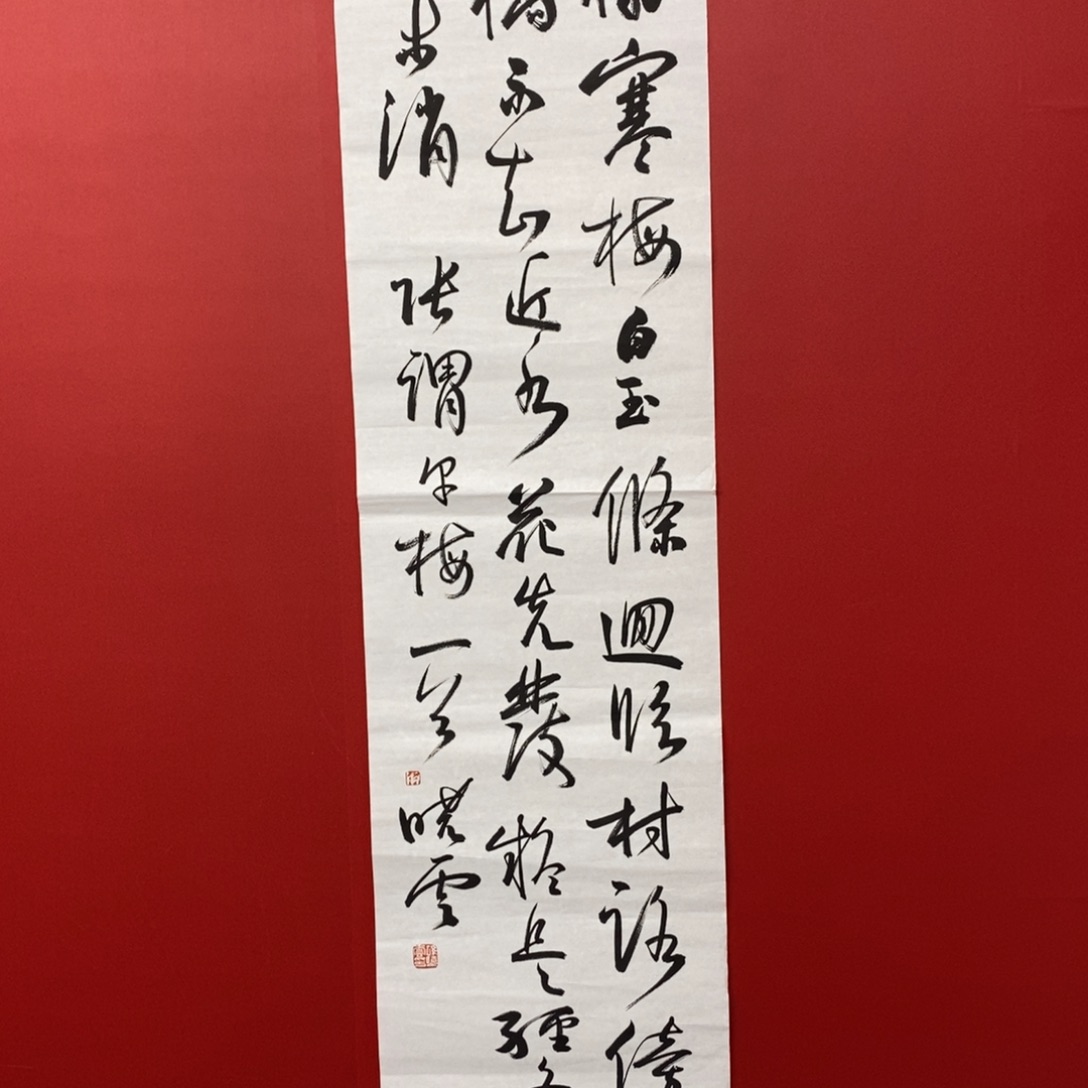 寒梅白玉條迴臨村路傍
橋不知近水花先發疑是經冬
未消 張謂早梅一首 曉雲